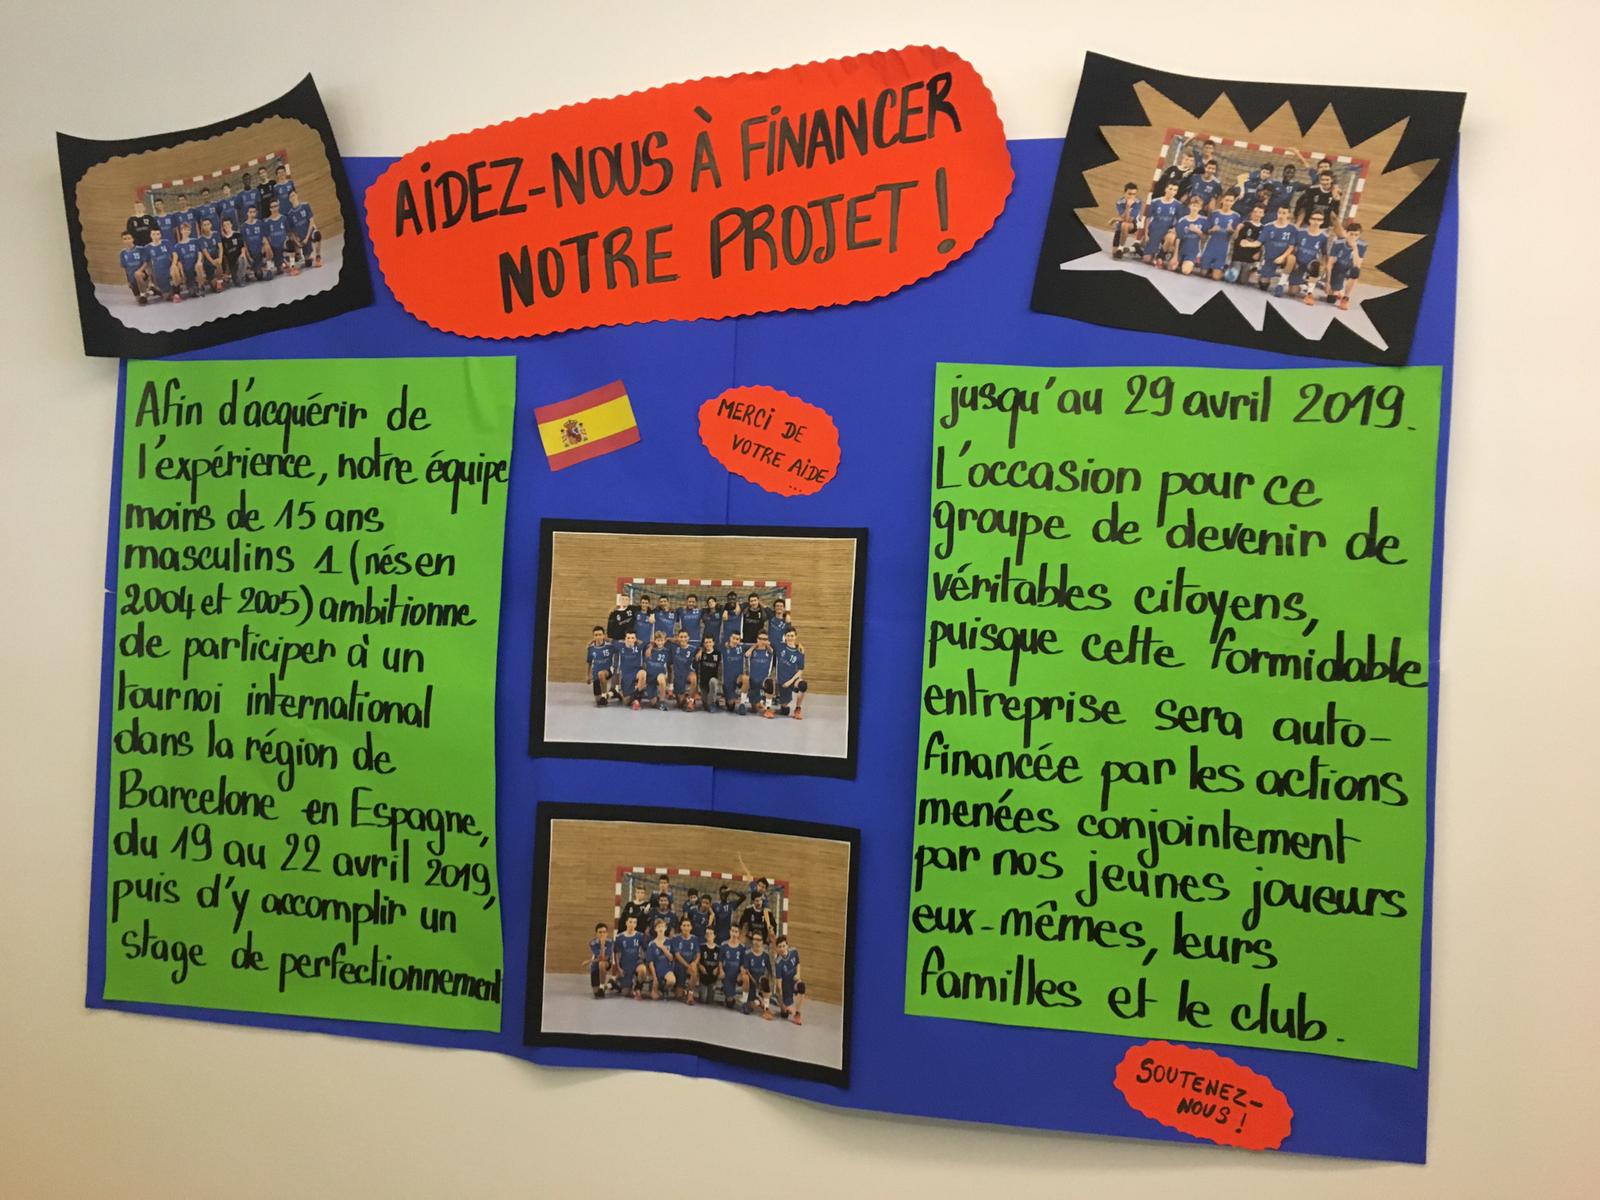 AiDEZ-NOUS À FiNANCER
NOTRE PROJET !
Afin d'acquérir de
l'expérience, notre équipe
moins de 15 ans
masculins 1 (nés en
2004 et 2005) ambitionne
de participer à un
tournoi international
dans la région de
Barcelone en Espagne,
du 19 au 22 avril 2019,
puis d'y accomplir un
stage de perfectionnement
MERCi DE
VOTRE AiDE
...
jusqu'au 29 avril 2019.
L'occasion pour ce
groupe de devenir de
véritables citoyens,
puisque cette formidable
entreprise sera auto-
financée par les actions
menées conjointement
par nos jeunes joueurs
eux-mêmes, leurs
familles et le club.
SOUTENEZ-
NOUS !